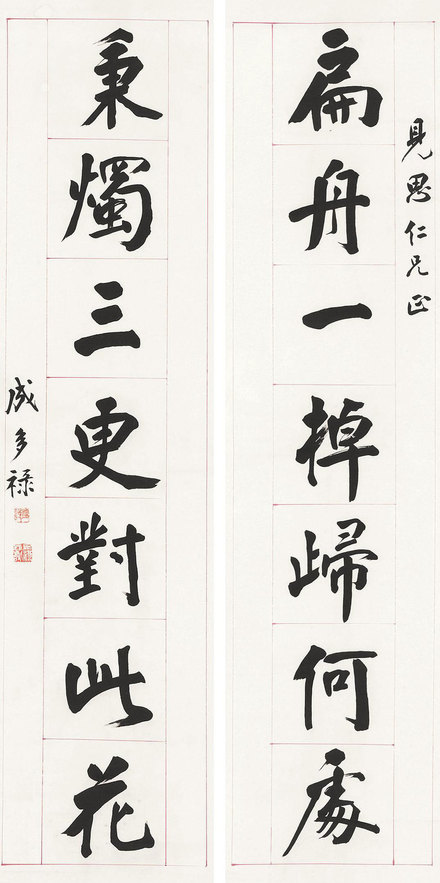 見思仁兄正
扁舟一掉歸何處
秉燭三更對此花
成多祿